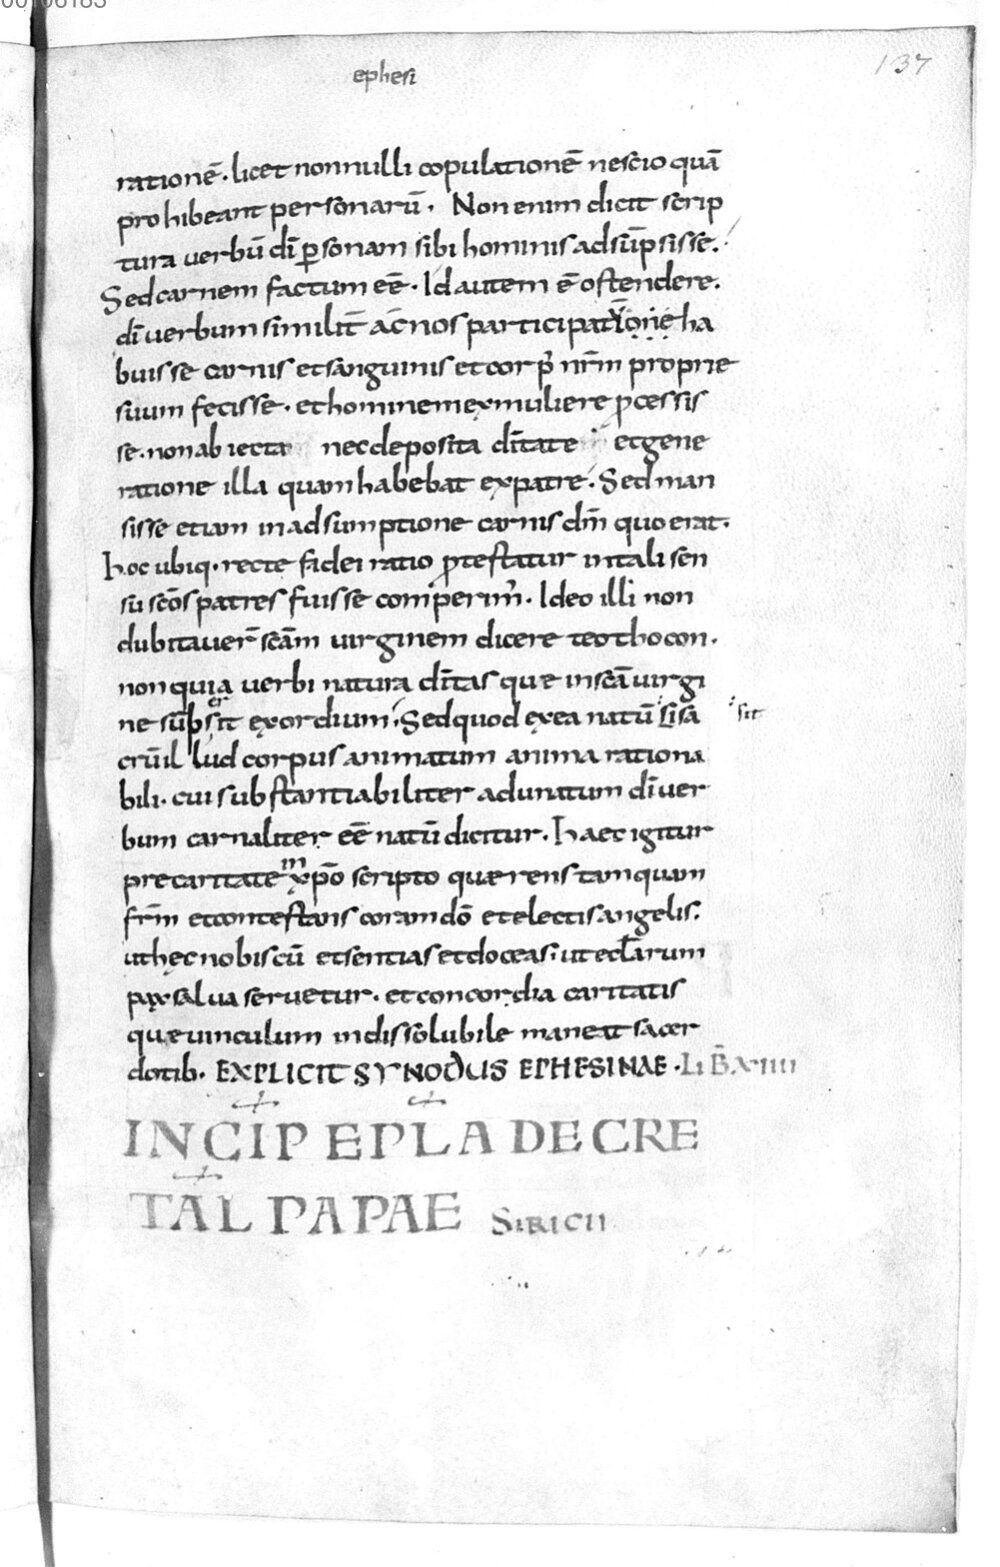 ephesi
137
rationē. licet nonnulli copulationē nescio quā
prohibeant personarū. Non enim dicit scrip
tura uerbū dī ꝑsonam sibi hominis adsūpsisse.
Sed carnem factum eē. Id autem ē ostendere.
dī uerbum similit̄ ac̄ nos participatione ha
buisse carnis et sanguinis et corp' nr̄m proprie
suum fecisse. et hominem ex muliere ꝓcessis
se. non abiecta nec deposita dītate et gene
ratione illa quam habebat ex patre. Sed man
sisse etiam in adsumptione carnis dm̄ quo erat.
Hoc ubiq. recte fidei ratio ꝓtestatur in tali sen
su scōs patres fuisse comperim'. Ideo illi non
dubitauer̄ scām uirginem dicere teothocon.
non quia uerbi natura dītas quę in scā uirgi
ne sūpserit exordium. Sed quod ex ea natū sit sa
sit
crū illud corpus animatum anima rationa
bili. cui substantiabiliter adunatum dī uer
bum carnaliter eē natū dicitur. Haec igitur
pre caritate in xp̄o scripto quęrens tamquam
fr̄m et contestans coram dō et electis angelis.
ut hęc nobiscū et sentias et doceas. ut eccl̄arum
pax salua seruetur. et concordia caritatis
quę uinculum indissolubile maneat sacer
dotib. EXPLICIT SYNODUS EPHESINAE. LIB̄ XIIII
INCIP EPLA DECRE
TAL PAPAE SIRICII